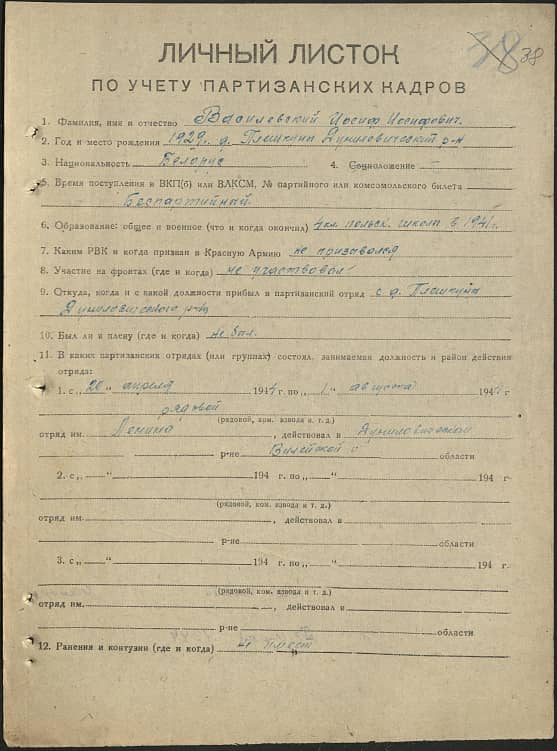 38 38
ЛИЧНЫЙ ЛИСТОК
ПО УЧЕТУ ПАРТИЗАНСКИХ КАДРОВ
1. Фамилия, имя и отчество Василевский Иосиф Иосифович.
2. Год и место рождения 1929 д. Плашкина Дуниловический р-н
3. Национальность Белорус 4. Соцположение
5. Время поступления в ВКП(б) или ВЛКСМ, № партийного или комсомольского билета
Беспартийный.
6. Образование: общее и военное (что и когда окончил) 4 кл. польск. школа в
7. Каким РВК и когда призван в Красную Армию не призывался
8. Участие на фронтах (где и когда) не участвовал
9. Откуда, когда и с какой должности прибыл в партизанский отряд с д. Плашкина
Дуниловичского р-на
10. Был ли в плену (где и когда) не был.
11. В каких партизанских отрядах (или группах) состоял, занимаемая должность и район действия
отряда:
1. с „20“ апреля 1944 г. по „1“ августа 194 г
рядовой
(рядовой, ком. взвода и т. д.)
отряд им. Ленина, действовал в Дуниловичском
р-не Вилейской области
2. с „ “ 194 г. по „ “ 194 г
(рядовой, ком. взвода и т. д.)
отряд им. , действовал в
р-не области
3. с „ “ 194 г. по „ “ 194 г
(рядовой, ком. взвода и т. д.)
отряд им. , действовал в
р-не области
12. Ранения и контузии (где и когда) не имеет